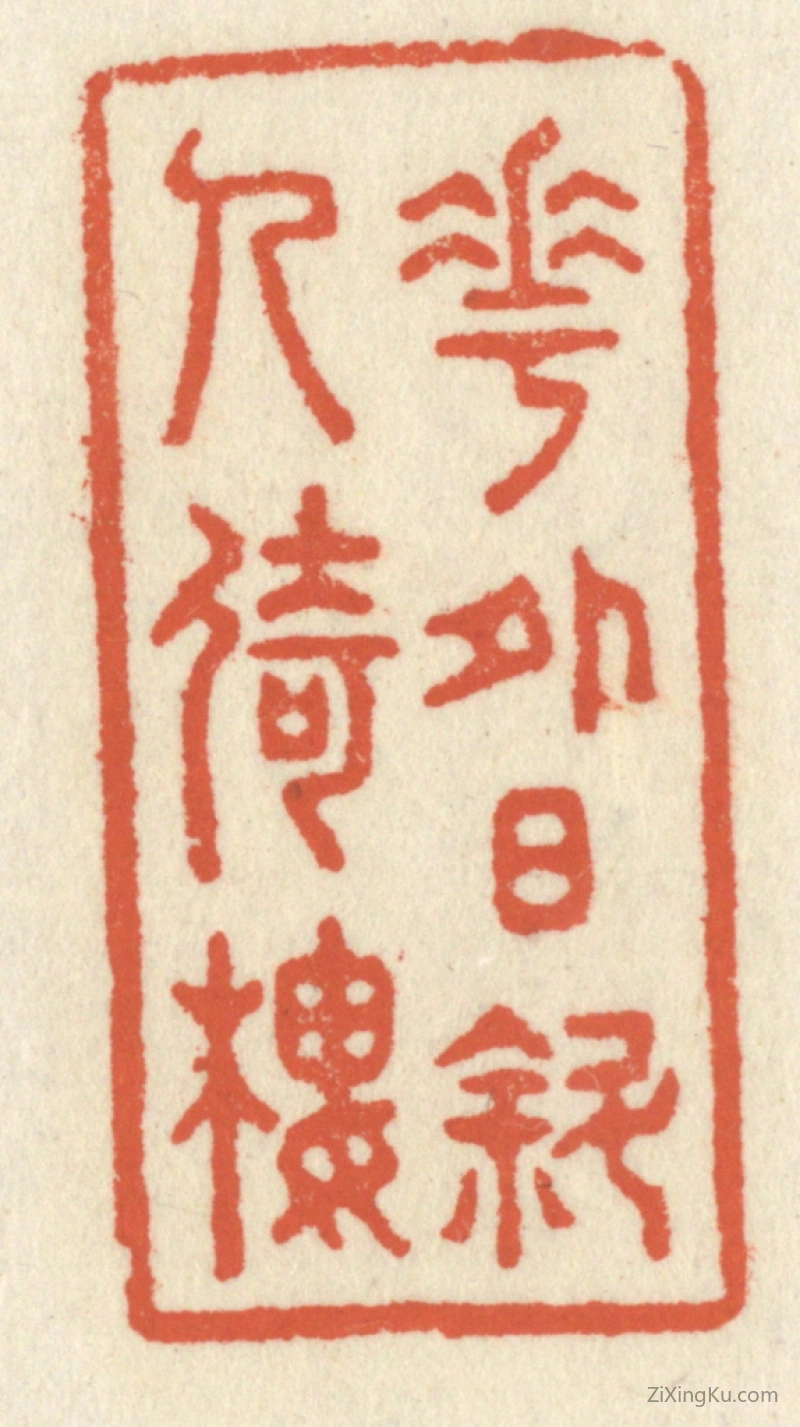 華外日斜
人倚樓
ZiXingKu.com